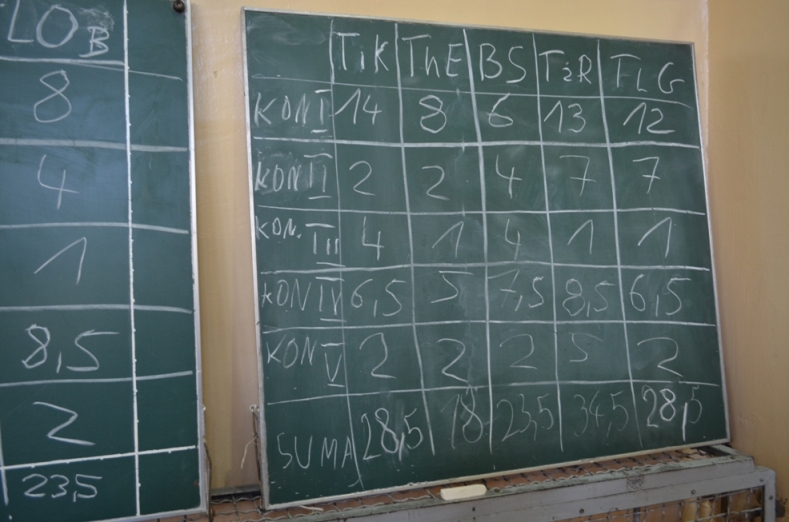 LOB
8
4
1
8,5
2
23,5
TiK ThE BS TżR TLG
KON I 14 8 6 13 12
KON II 2 2 4 7 7
KON. III 4 1 4 1 1
KON IV 6,5 5 7,5 8,5 6,5
KON V 2 2 2 5 2
SUMA 28,5 18 23,5 34,5 28,5